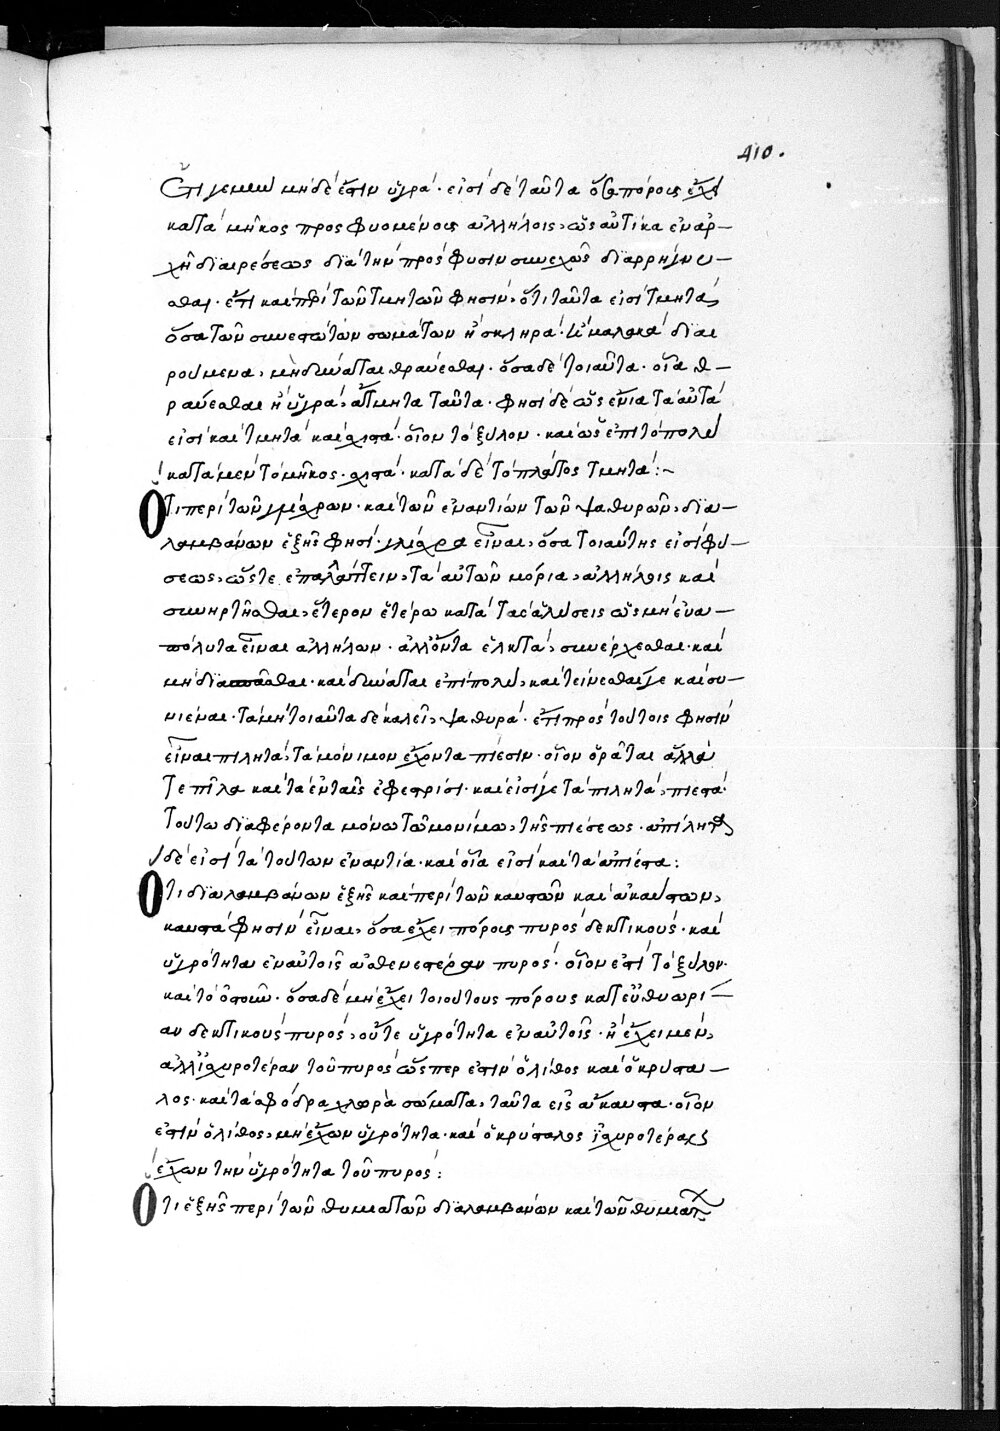 410.
Ἔτι γε μὴν μὴ δέ ἐστιν ὑγρά· εἰσὶ δὲ ταῦτα ὅσα πόρους ἔχει
κατὰ μῆκος προσφυομένους ἀλλήλοις, ὡς αὐτίκα ἐν ἀρ-
χῆ διαιρέσεως διὰ τὴν πρόσφυσιν συνεχῶς διαρρήγνυ-
σθαι· ἔτι καὶ περὶ τῶν τμητῶν φησίν, ὅτι ταῦτα εἰσὶ τμητὰ,
ὅσα τῶν συνεστώτων σωμάτων ἢ σκληρὰ ἢ μαλακὰ διαι
ρούμενα, μὴ δύναται θραύεσθαι· ὅσα δὲ τοιαῦτα· οἷα θ-
ραύεσθαι ἢ ὑγρά, ἄτμητα ταῦτα· φησὶ δὲ ὡς ἔνια τὰ αὐτά
εἰσι καὶ τμητὰ καὶ σχιστά· οἷον τὸ ξύλον· καὶ ὡς ἐπιτοπολὺ
κατὰ μὲν τὸ μῆκος· σχιστά· κατὰ δὲ τὸ πλάτος τμητά:~
Ὅτι περὶ τῶν γλίσχρων· καὶ τῶν ἐναντίων τῶν ψαθυρῶν, δια-
λαμβάνων ἑξῆς φησί· γλίσχρα εἶναι, ὅσα τοιαύτης εἰσὶ φύ-
σεως, ὥστε ἐπαλλάττειν, τὰ αὐτῶν μόρια, ἀλλήλοις καὶ
συνηρτῆσθαι, ἕτερον ἑτέρω κατὰ τὰς ἁλύσεις ὡς μὴ ἐνα-
πόλυτα εἶναι ἀλλήλων· ἀλλ' ὄντα ἑλκτά, συνέρχεσθαι· καὶ
μὴ διασπᾶσθαι· καὶ δύναται ἐπιπολὺ, καὶ τείνεσθαί γε καὶ συ-
νιέναι· τὰ μὴ τοιαῦτα δὲ καλεῖ, ψαθυρά· ἔτι πρὸς τούτοις φησὶν
εἶναι πιλητά, τὰ μόνιμον ἔχοντα πίεσιν· οἷον ὁρᾶται ἄλλά
τε πῖλα καὶ τὰ ἐν ταῖς ἐφεστρίσι· καὶ εἰσί γε τὰ πιλητά, πιεστά·
τούτω διαφέροντα μόνω τῶ μονίμω, τῆς πιέσεως· ἀπίλητα
δέ εἰσι τὰ τούτων ἐναντία· καὶ οἷα εἰσὶ καὶ τὰ ἀπίεστα:
Ὅτι διαλαμβάνων ἑξῆς καὶ περὶ τῶν καυστῶν καὶ ἀκαύστων,
καυστά φησὶν εἶναι, ὅσα ἔχει πόρους πυρὸς δεκτικούς· καὶ
ὑγρότητα ἐν αὐτοῖς ἀσθενεστέραν πυρός· οἷον ἐστὶ τὸ ξύλον·
καὶ τὸ ὀστοῦν· ὅσα δὲ μὴ ἔχει τοιούτους πόρους κατ' εὐθυωρί-
αν δεκτικοὺς πυρός, οὔτε ὑγρότητα ἐν αὐτοῖς· ἢ ἔχει μὲν,
ἀλλ' ἰσχυροτέραν τοῦ πυρὸς ὥσπερ ἐστὶν ὁ λίθος καὶ ὁ κρύστα-
λος· καὶ τὰ σφόδρα χλωρὰ σώματα, ταῦτα εἰσὶ ἄκαυστα· οἷον
ἐστὶν ὁ λίθος, μὴ ἔχων ὑγρότητα· καὶ ὁ κρύσταλος ἰσχυροτέραν
ἔχων τὴν ὑγρότητα τοῦ πυρός:
Ὅτι ἑξῆς περὶ τῶν θυμιατῶν διαλαμβάνων καὶ τῶν